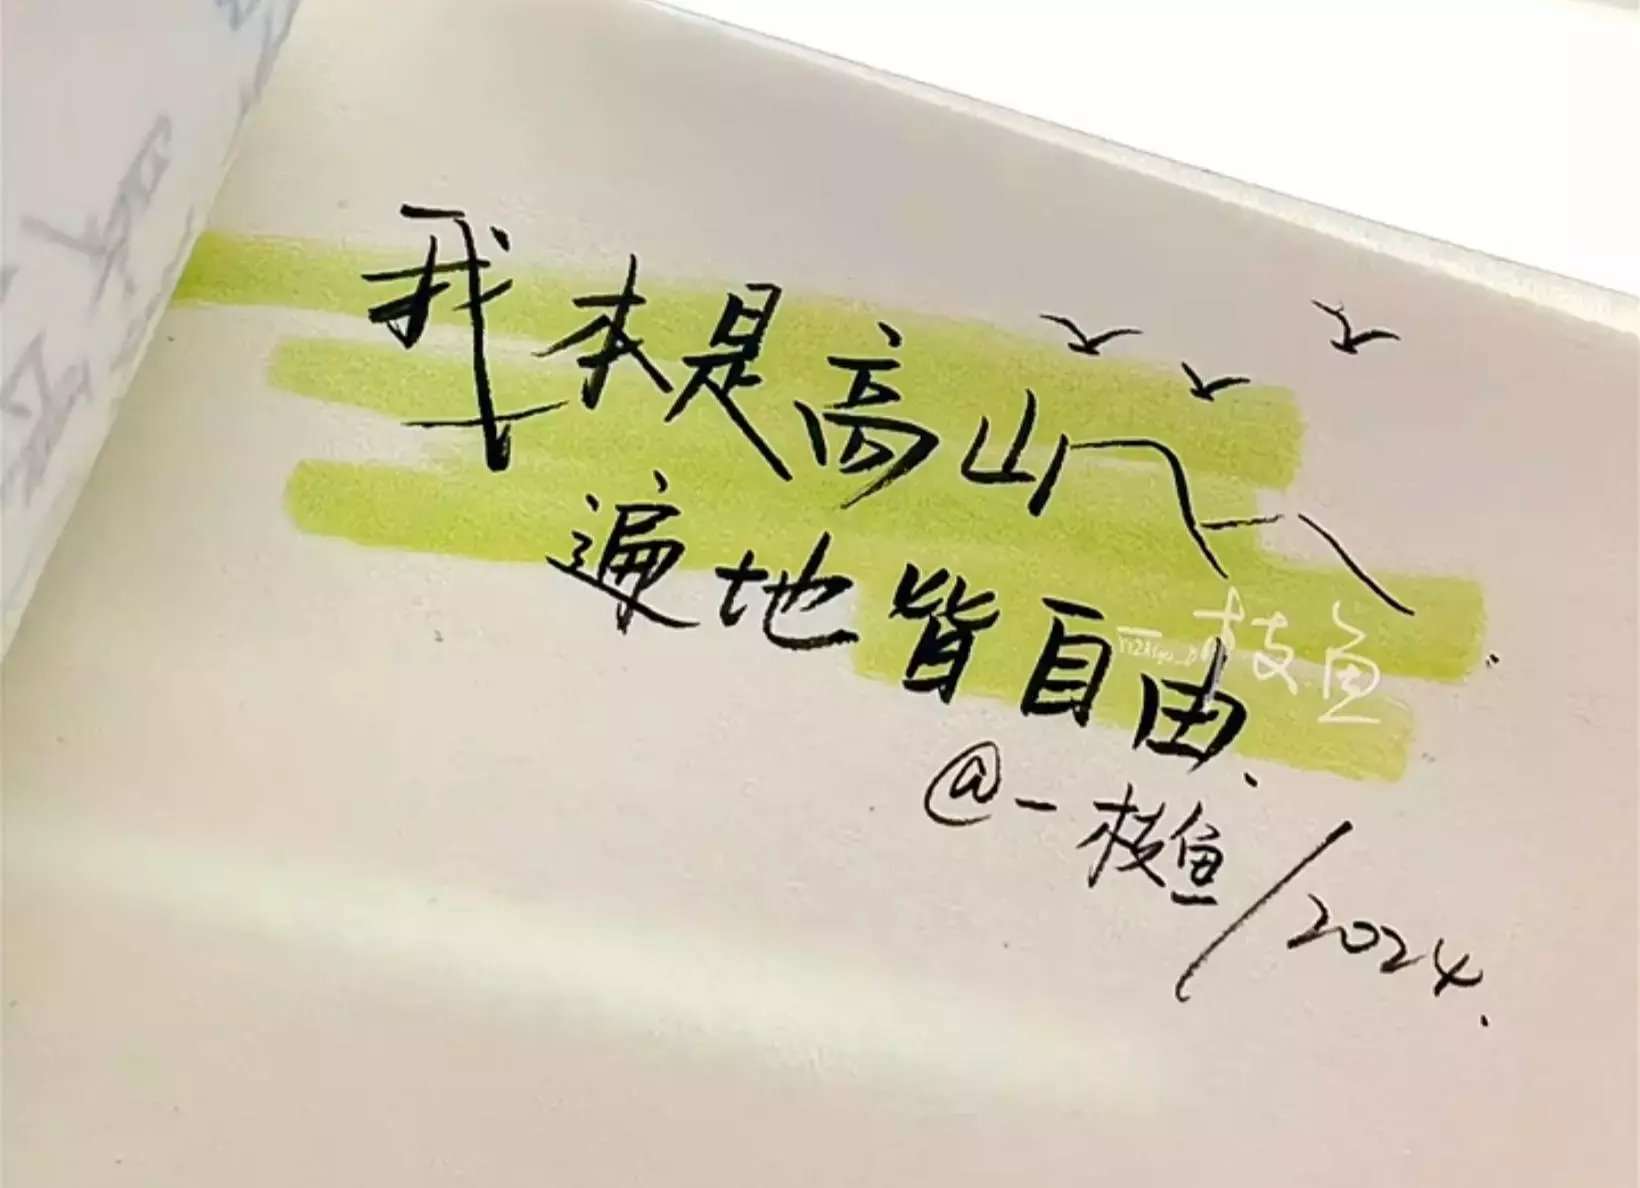 我本是高山
遍地皆自由.
@一枝鱼/2024.
一枝鱼